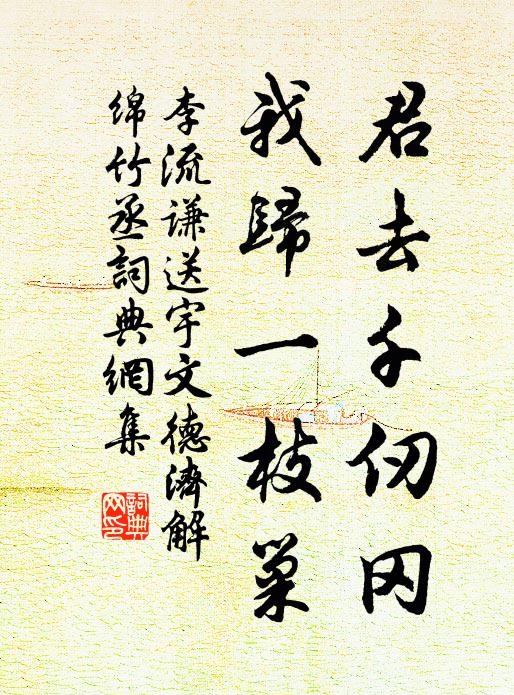 君去千仞冈
我歸一枝巢
李流谦送宇文德濟解
绵竹丞詞典網集
詞典
网印